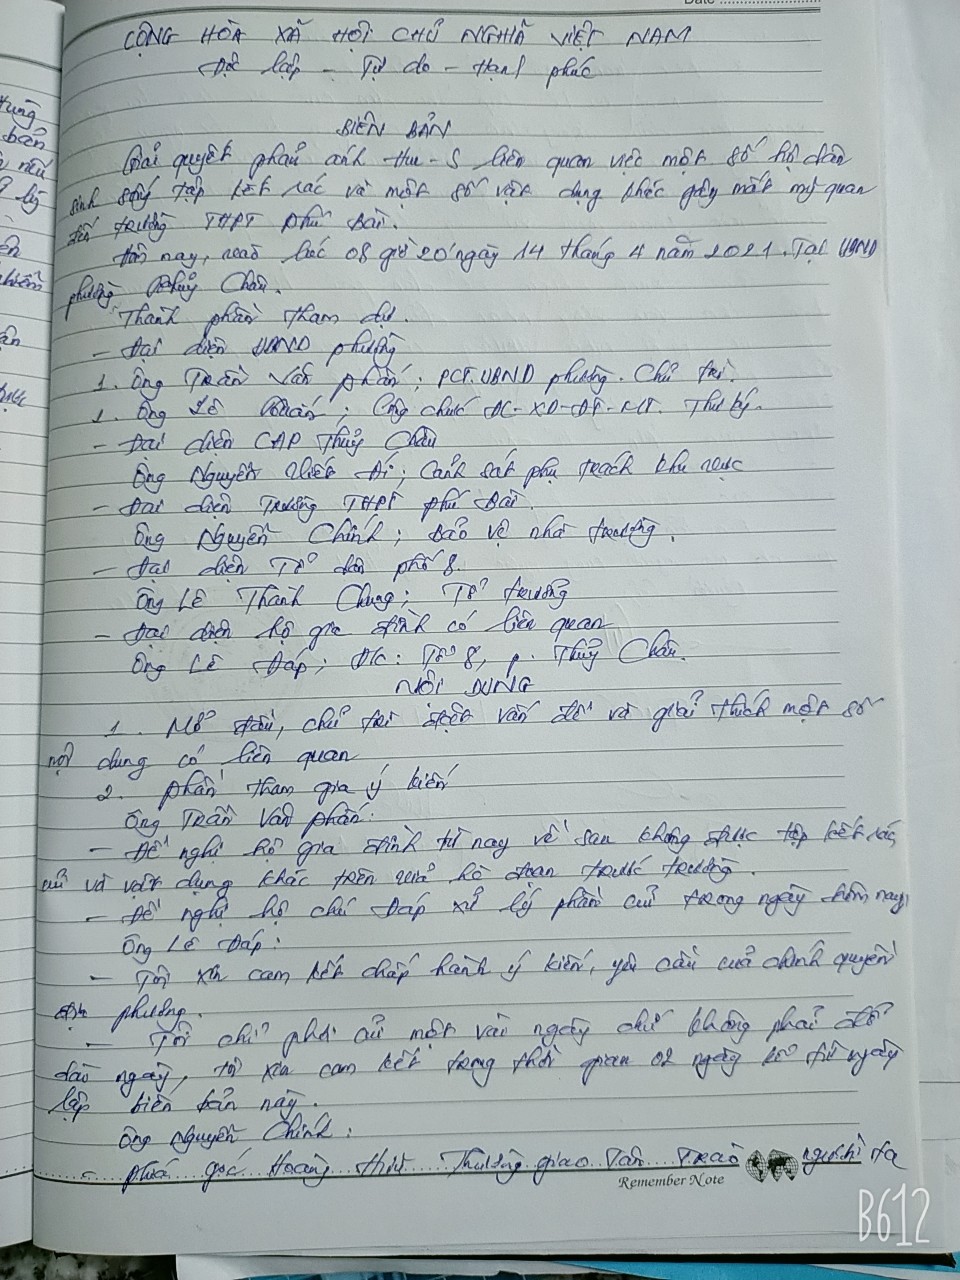 Date
CỘNG HÒA XÃ HỘI CHỦ NGHĨA VIỆT NAM
Độc lập - Tự do - Hạnh phúc
BIÊN BẢN
Giải quyết phản ánh Hue-S liên quan việc một số hộ dân
sinh sống tập kết rác và một số vật dụng khác gây mất mỹ quan
đến trường THPT Phú Bài.
Hôm nay, vào lúc 08 giờ 20' ngày 14 tháng 4 năm 2021. Tại UBND
phường Thủy Châu.
Thành phần tham dự.
- Đại diện UBND phường
1. Ông Trần Văn Phấn; PCT.UBND phường. Chủ trì.
1. Ông Lê; Công chức ĐC-XD-ĐT-MT. Thư ký.
- Đại diện CAP Thủy Châu
Ông Nguyễn Viết; Cảnh sát phụ trách khu vực
- Đại diện Trường THPT Phú Bài.
Ông Nguyễn Chính; Bảo vệ nhà trường.
- Đại diện Tổ dân phố 8.
Ông Lê Thanh Chung; Tổ trưởng
- Đại diện hộ gia đình có liên quan
Ông Lê Đáp; ĐC: Tổ 8, p. Thủy Châu.
NỘI DUNG
1. Mở đầu, chủ trì đặt vấn đề và giải thích một số
nội dung có liên quan
2. Phần tham gia ý kiến
Ông Trần Văn Phấn:
- Đề nghị hộ gia đình từ nay về sau không được tập kết rác,
củi và vật dụng khác trên vỉa hè đoạn trước trường.
- Đề nghị hộ chú Đáp xử lý phần củi trong ngày hôm nay,
Ông Lê Đáp:
- Tôi xin cam kết chấp hành ý kiến, yêu cầu của chính quyền
địa phương.
- Tôi chỉ phơi củi một vài ngày chứ không phải để
dài ngày, tôi xin cam kết trong thời gian 02 ngày kể từ ngày
lập biên bản này.
Ông Nguyễn Chính:
- Phía góc Hoàng Hữu Thường giao Tân Trào
Remember Note
B612